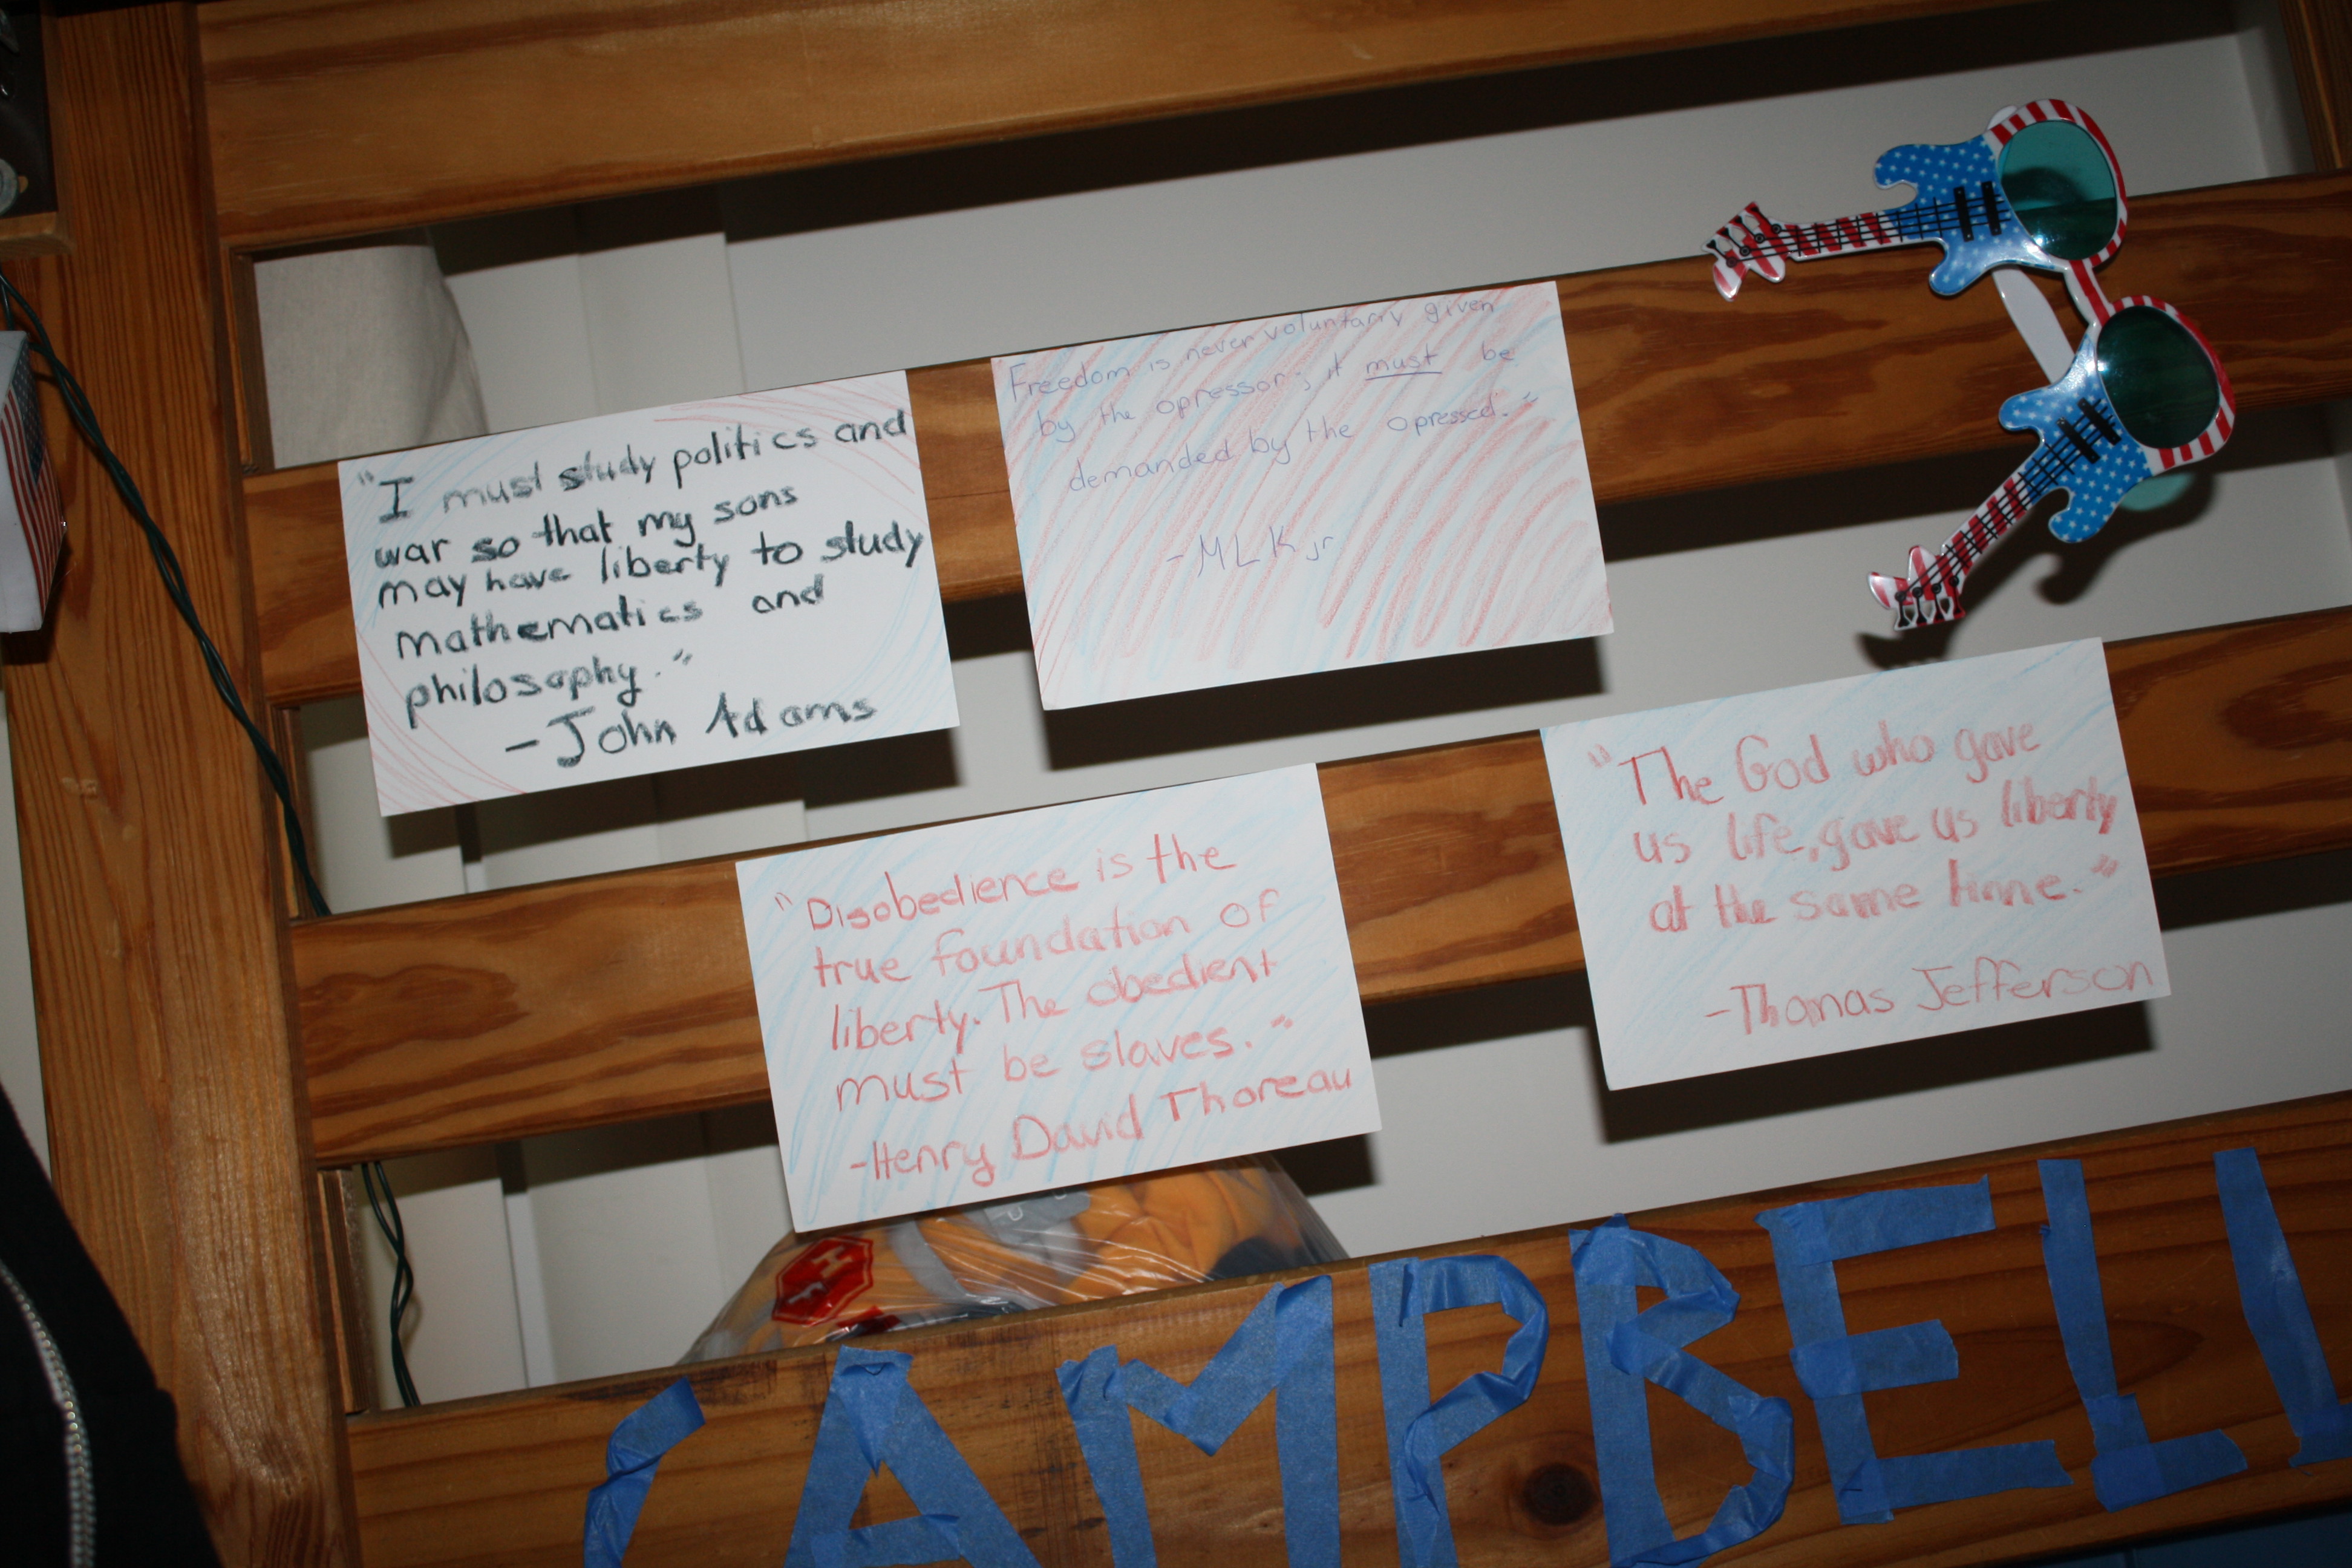 "I must study politics and
war so that my sons
may have liberty to study
mathematics and
philosophy."
-John Adams
Freedom is never voluntarry given
by the opressor; it must be
demanded by the opressed."
-MLK jr
"Disobedience is the
true foundation of
liberty. The obedient
must be slaves."
-Henry David Thoreau
"The God who gave
us life, gave us liberty
at the same time."
-Thomas Jefferson
CAMPBELL